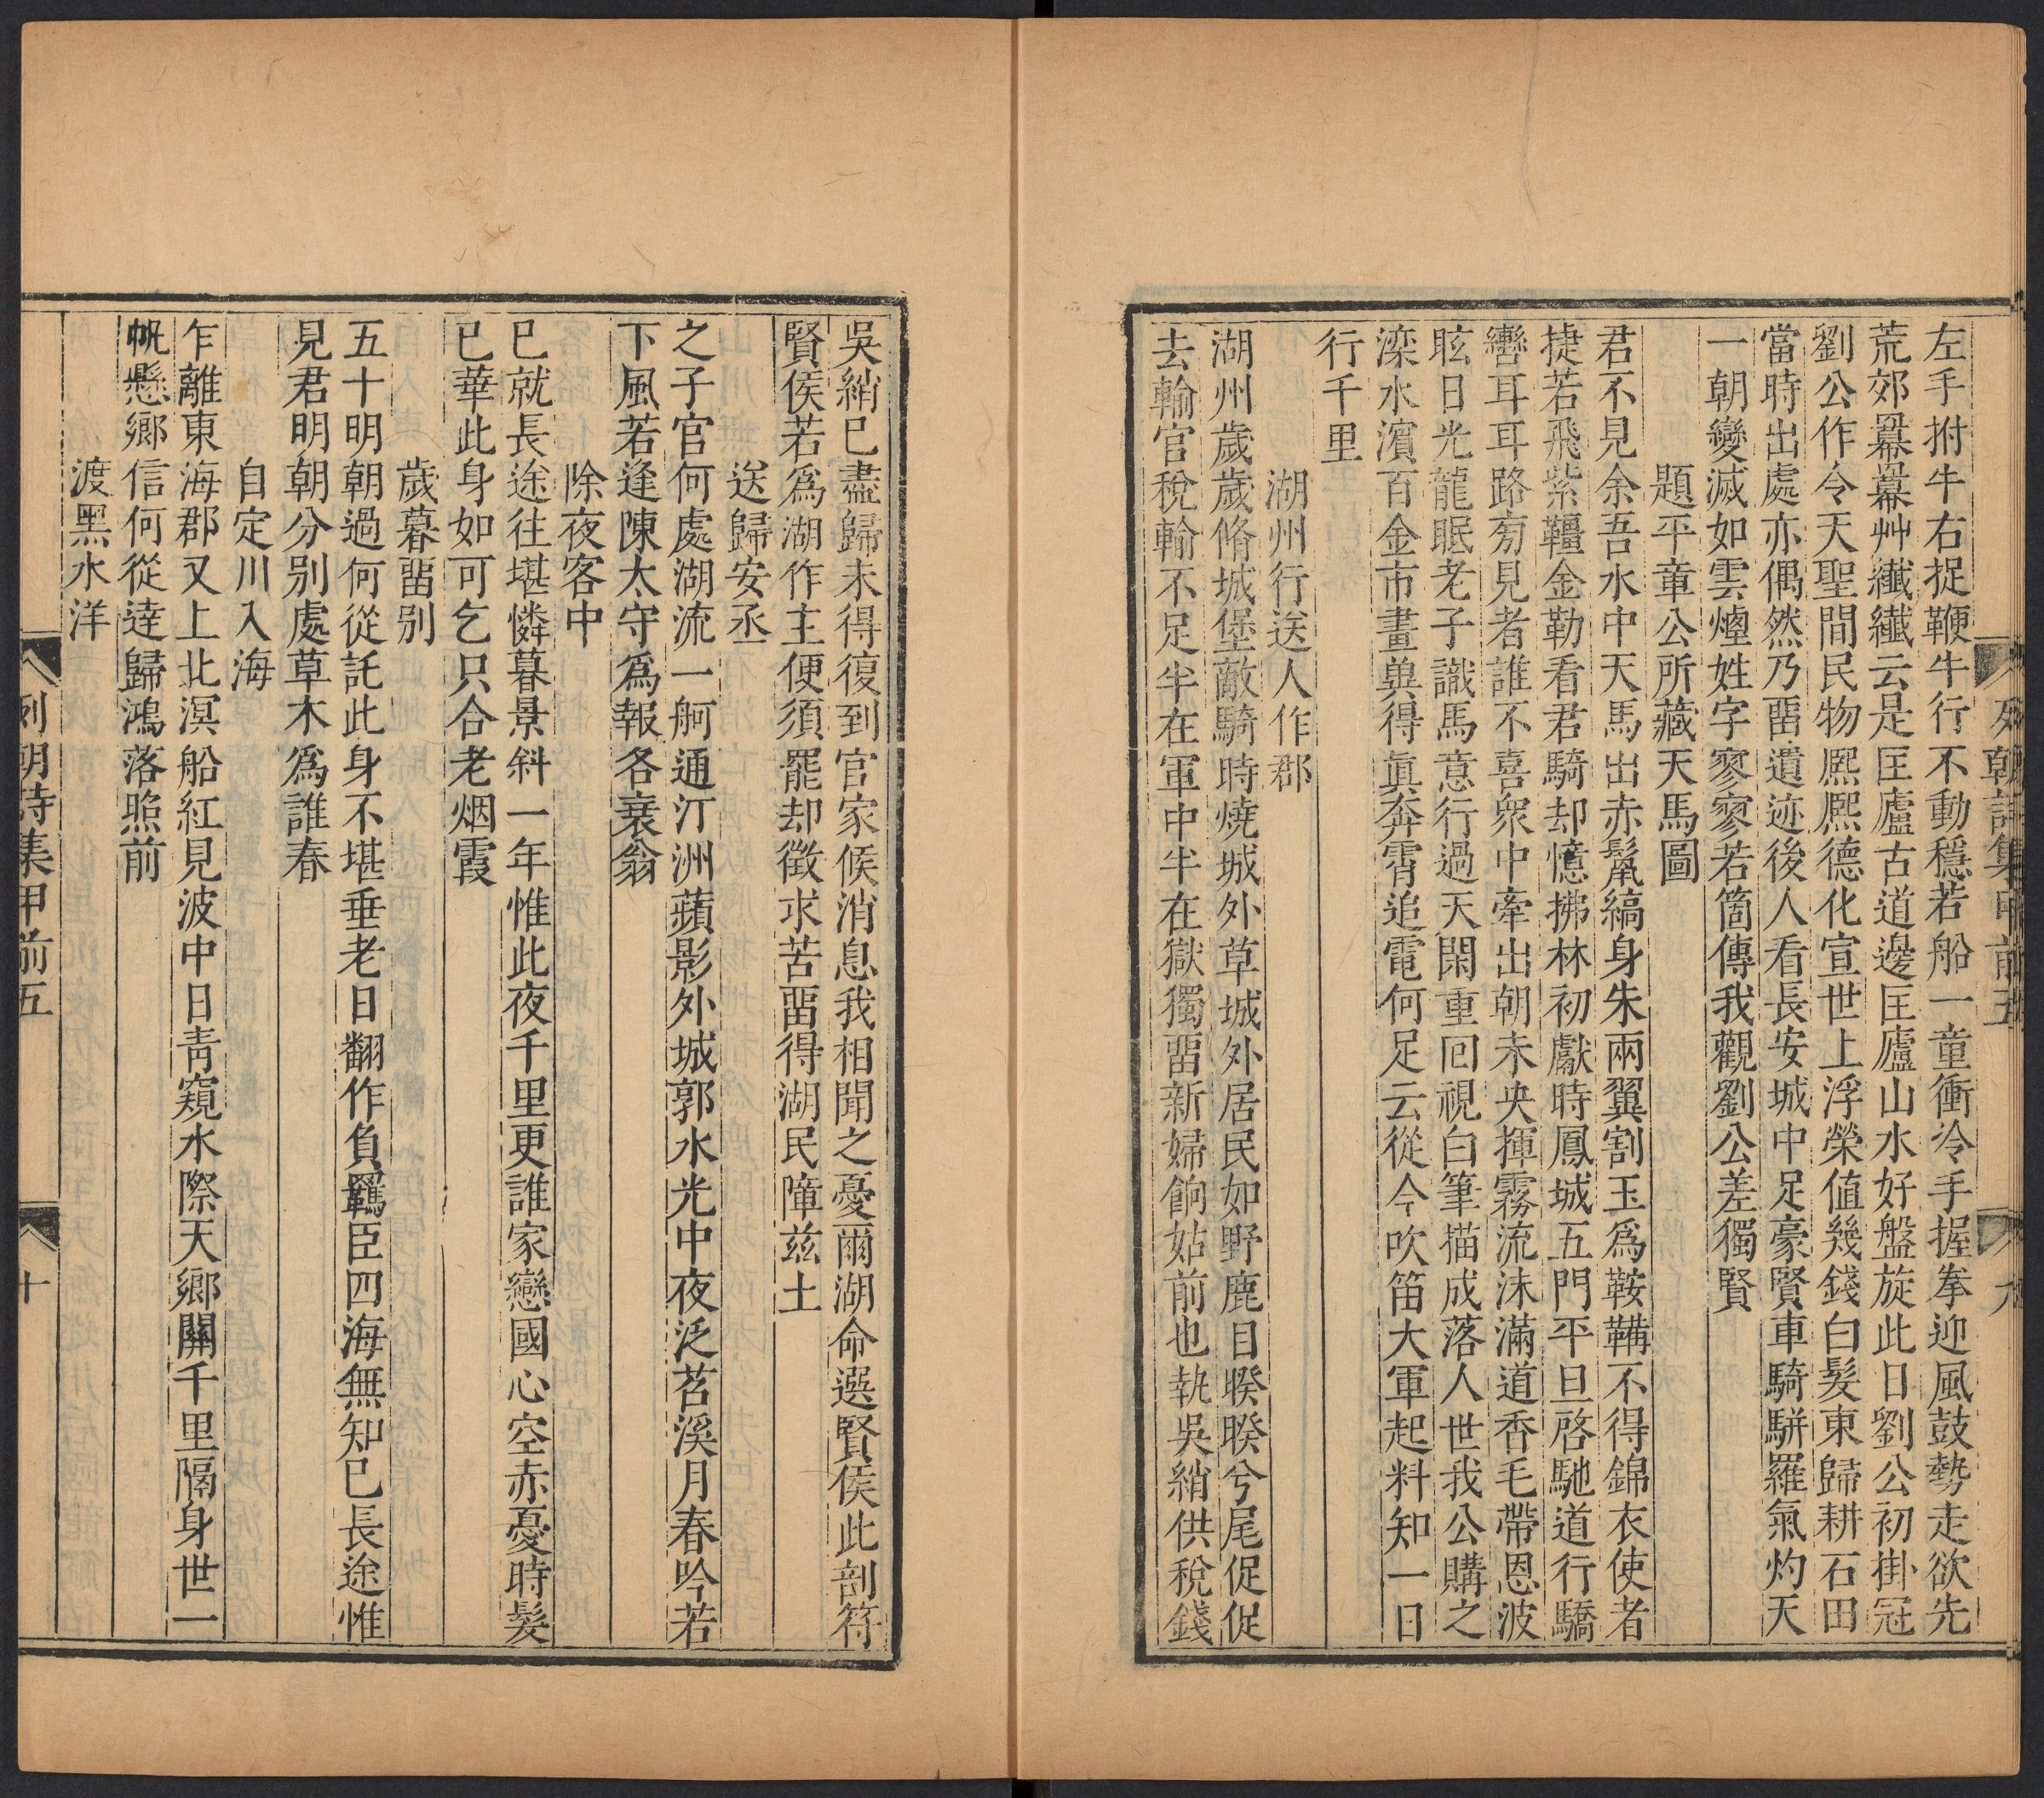 列朝詩集甲前五
九
左手拊牛右捉鞭牛行不動穩若船一童衝冷手握拳迎風鼓勢走欲先
荒郊羃羃艸纖纖云是匡廬古道邊匡廬山水好盤旋此日劉公初掛冠
劉公作令天聖間民物熙熙德化宣世上浮榮值幾錢白髮東歸耕石田
當時出處亦偶然乃畱遺迹後人看長安城中足豪賢車騎駢羅氣灼天
一朝變滅如雲煙姓字寥寥若箇傳我觀劉公差獨賢
題平章公所藏天馬圖
君不見余吾水中天馬出赤鬣縞身朱兩翼割玉爲鞍韝不得錦衣使者
捷若飛紫韁金勒看君騎却憶拂林初獻時鳳城五門平旦啓馳道行驕
轡耳耳路旁見者誰不喜衆中牽出朝未央揮霧流沫滿道香毛帶恩波
眩日光龍眠老子識馬意行過天閑重回視白筆描成落人世我公購之
灤水濱百金市畫兼得眞奔霄追電何足云從今吹笛大軍起料知一日
行千里
湖州行送人作郡
湖州歲歲脩城堡敵騎時燒城外草城外居民如野鹿目睽睽兮尾促促
去輸官稅輸不足半在軍中半在獄獨畱新婦餉姑前也執吳綃供稅錢
吳綃已盡歸未得復到官家候消息我相聞之憂爾湖命選賢侯此剖符
賢侯若爲湖作主便須罷却徵求苦畱得湖民障茲土
送歸安丞
之子官何處湖流一舸通汀洲蘋影外城郭水光中夜泛苕溪月春吟若
下風若逢陳太守爲報各衰翁
除夜客中
已就長途往堪憐暮景斜一年惟此夜千里更誰家戀國心空赤憂時髮
已華此身如可乞只合老烟霞
歲暮畱別
五十明朝過何從託此身不堪垂老日翻作負羈臣四海無知己長途惟
見君明朝分別處草木爲誰春
自定川入海
乍離東海郡又上北溟船紅見波中日靑窺水際天鄉關千里隔身世一
帆懸鄉信何從達歸鴻落照前
渡黑水洋
列朝詩集甲前五
十